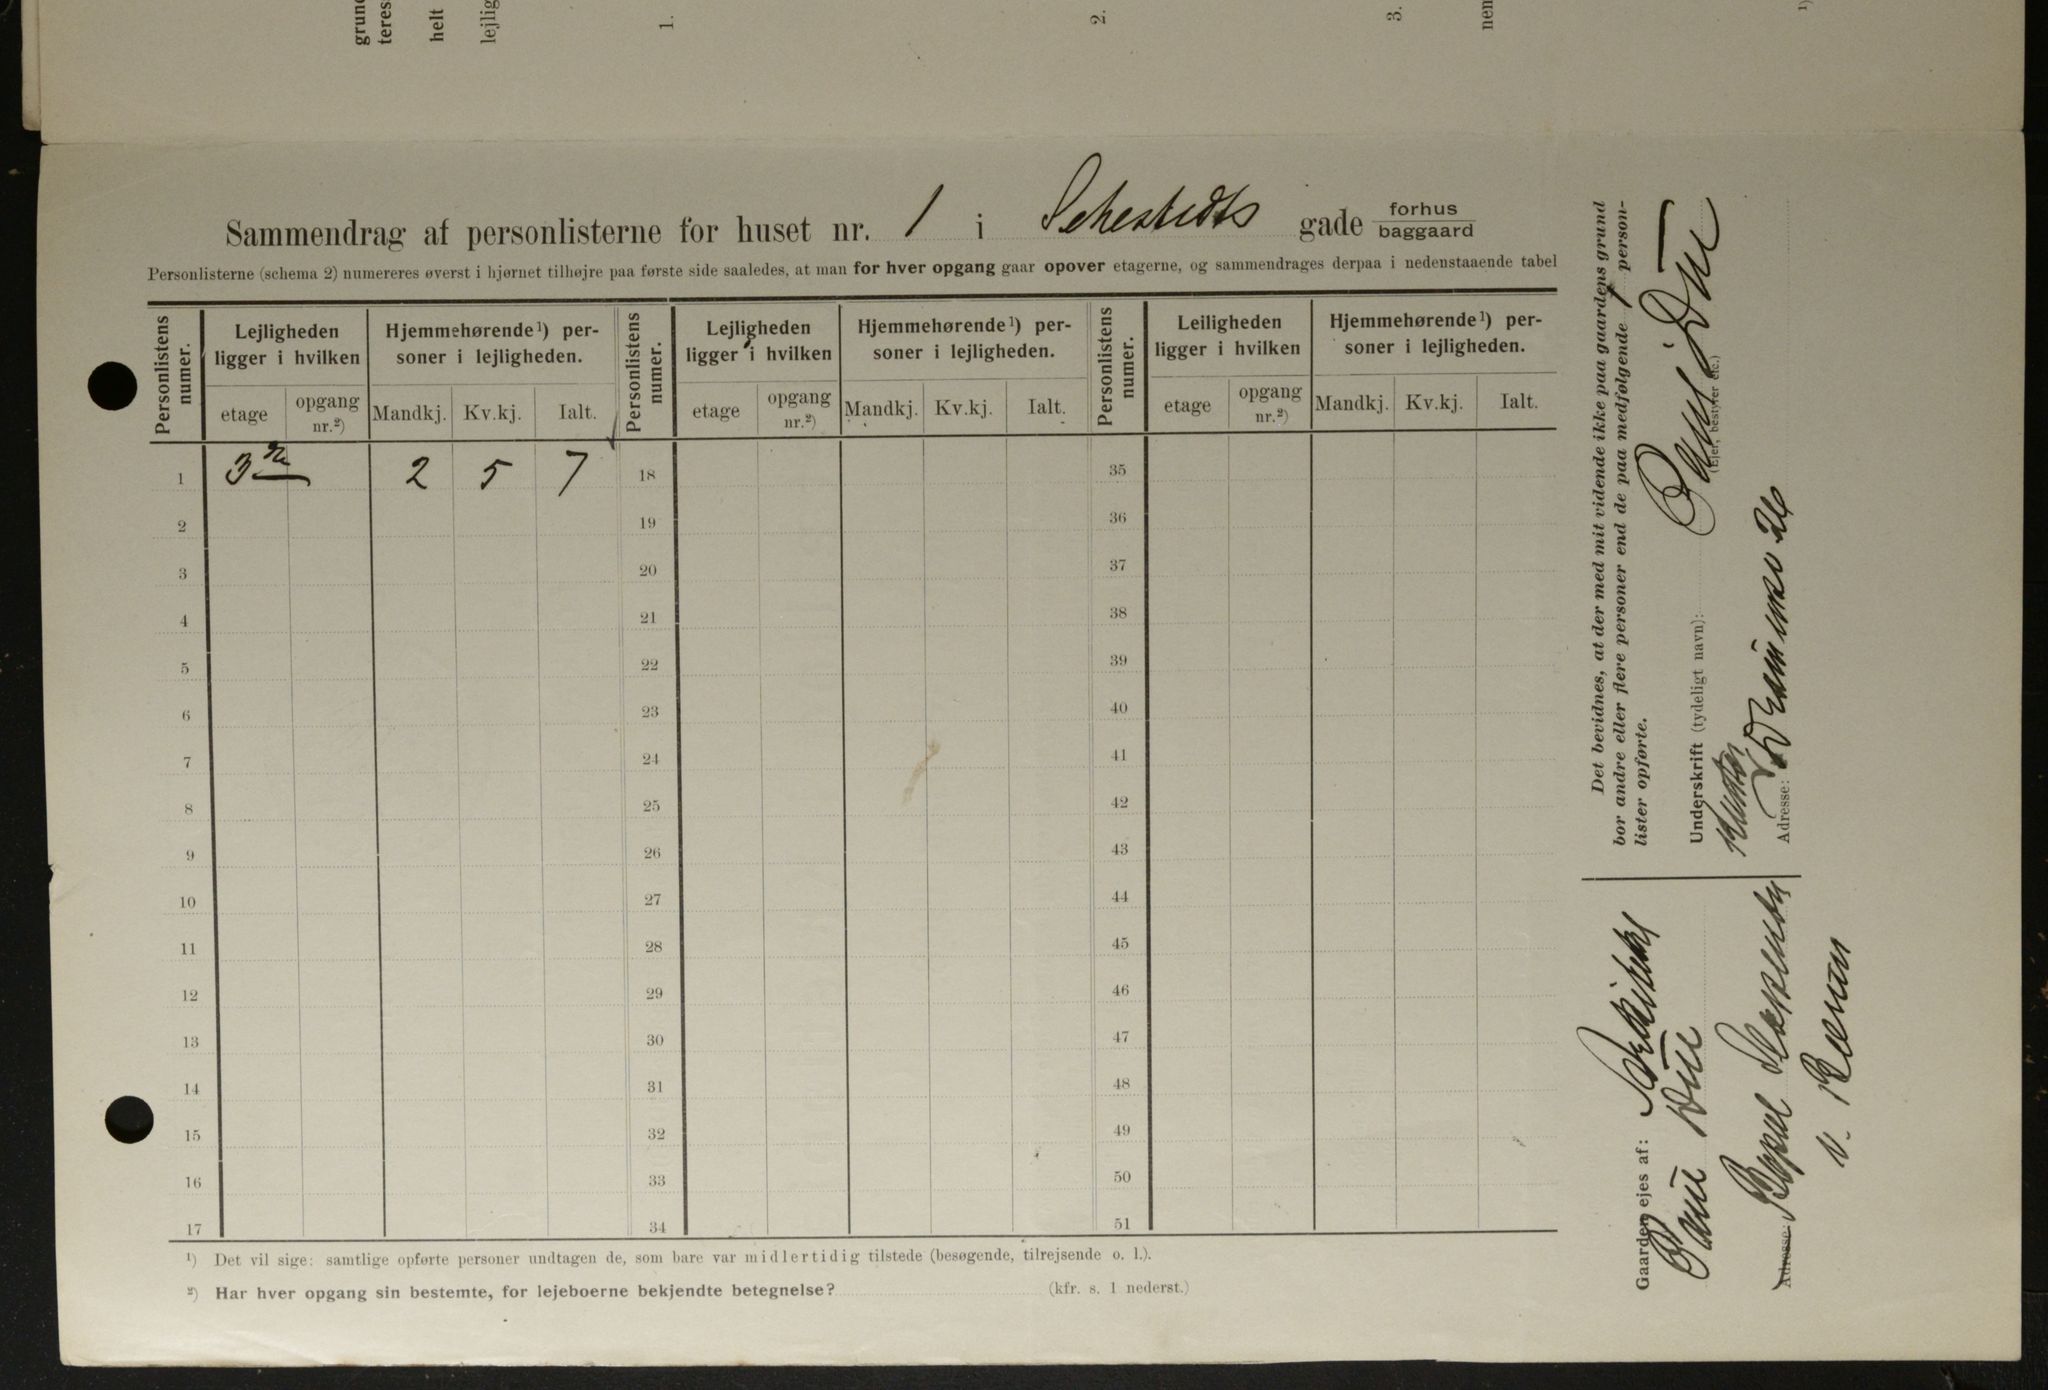 grund
teres
helt
lejlig
1.
2.
3.
nem
1)
Sammendrag af personlisterne for huset nr. 1 i Sehestedts gade forhus
baggaard
Personlisterne (schema 2) numereres øverst i hjørnet tilhøjre paa første side saaledes, at man for hver opgang gaar opover etagerne, og sammendrages derpaa i nedenstaaende tabel
Personlistens numer. Lejligheden ligger i hvilken Hjemmehørende¹) personer i lejligheden. Personlistens numer. Lejligheden ligger i hvilken Hjemmehørende¹) personer i lejligheden. Personlistens numer. Leiligheden ligger i hvilken Hjemmehørende¹) personer i lejligheden.
etage opgang nr.²) Mandkj. Kv.kj. Ialt. etage opgang nr.²) Mandkj. Kv.kj. Ialt. etage opgang nr.²) Mandkj. Kv.kj. Ialt.
1 3 2 5 7 18 35
2 19 36
3 20 37
4 21 38
5 22 39
6 23 40
7 24 41
8 25 42
9 26 43
10 27 44
11 28 45
12 29 46
13 30 47
14 31 48
15 32 49
16 33 50
17 34 51
¹) Det vil sige: samtlige opførte personer undtagen de, som bare var midlertidig tilstede (besøgende, tilrejsende o. l.).
²) Har hver opgang sin bestemte, for lejeboerne bekjendte betegnelse? (kfr. s. 1 nederst.)
Det bevidnes, at der med mit vidende ikke paa gaardens grund
bor andre eller flere personer end de paa medfølgende 1 person-
lister opførte.
Underskrift (tydeligt navn): Paul Due
(Ejer, bestyrer etc.)
Adresse: 26
Gaarden ejes af: Arkitekt
Paul Due
Adresse: